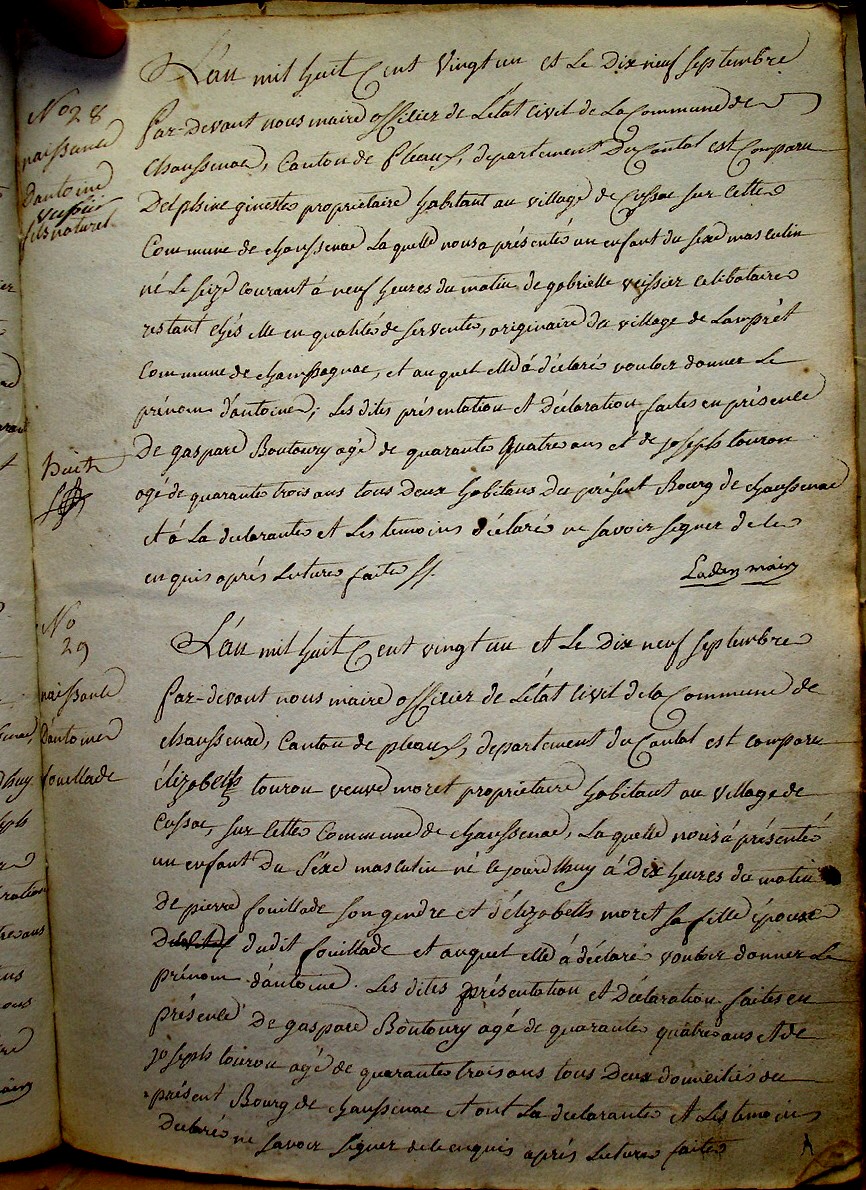 No 28
naissance
d'antoine
veissier
fils naturel
L'an mil huit Cent vingt un et Le Dix neuf septembre
par-Devant nous maire officier de L'état civil de La Commune de
chaussenac, Canton de pleaux, departement Du Cantal est Comparu
Delphine gineste propriétaire habitant au village de Cussac sur cette
Commune de chaussenac La quelle nous a présenté un enfant du sexe masculin
né Le seize courant à neuf heures du matin de gabrielle veissier celibataire
restant chés elle en qualité de servente, originaire du village de Lamprèt
Commune de champagnac, et au quel elle à déclaré vouloir donner Le
prénom d'antoine; Les dites présentation et Déclaration faites en présence
De gaspard Boutoury agé de quarante quatre ans et de joseph touron
agé de quarante trois ans tous Deux habitans du présent Bourg de chaussenac
et à La declarante et Les temoins déclaré ne savoir signer de ce
enquis aprés Lecture faite //.
huit
maire
No
29
naissance
D'antoine
fouillade
L'an mil huit Cent vingt un et Le Dix neuf septembre
par-devant nous maire officier de L'état civil de la Commune de
chaussenac, Canton de pleaux, departement du Cantal est comparu
élizabeth touron veuve moret propriétaire habitant au village de
Cussac, sur cette Commune de chaussenac, La quelle nous à présenté
un enfant Du séxe masculin né ce jourd'huy à Dix heures du matin
De pierre fouillade son gendre et d'élizabeth moret sa fille épouse
dudit fouillade et auquel elle à déclaré vouloir donner Le
prénom d'antoine. Les dites présentation et Déclaration faites en
présence De gaspard Boutoury agé de quarante quatre ans et de
joseph touron agé de quarante trois ans tous Deux domiciliés du
présent Bourg de chaussenac et ont La declarante et Les temoins
declaré ne savoir signer de ce enquis aprés Lecture faite